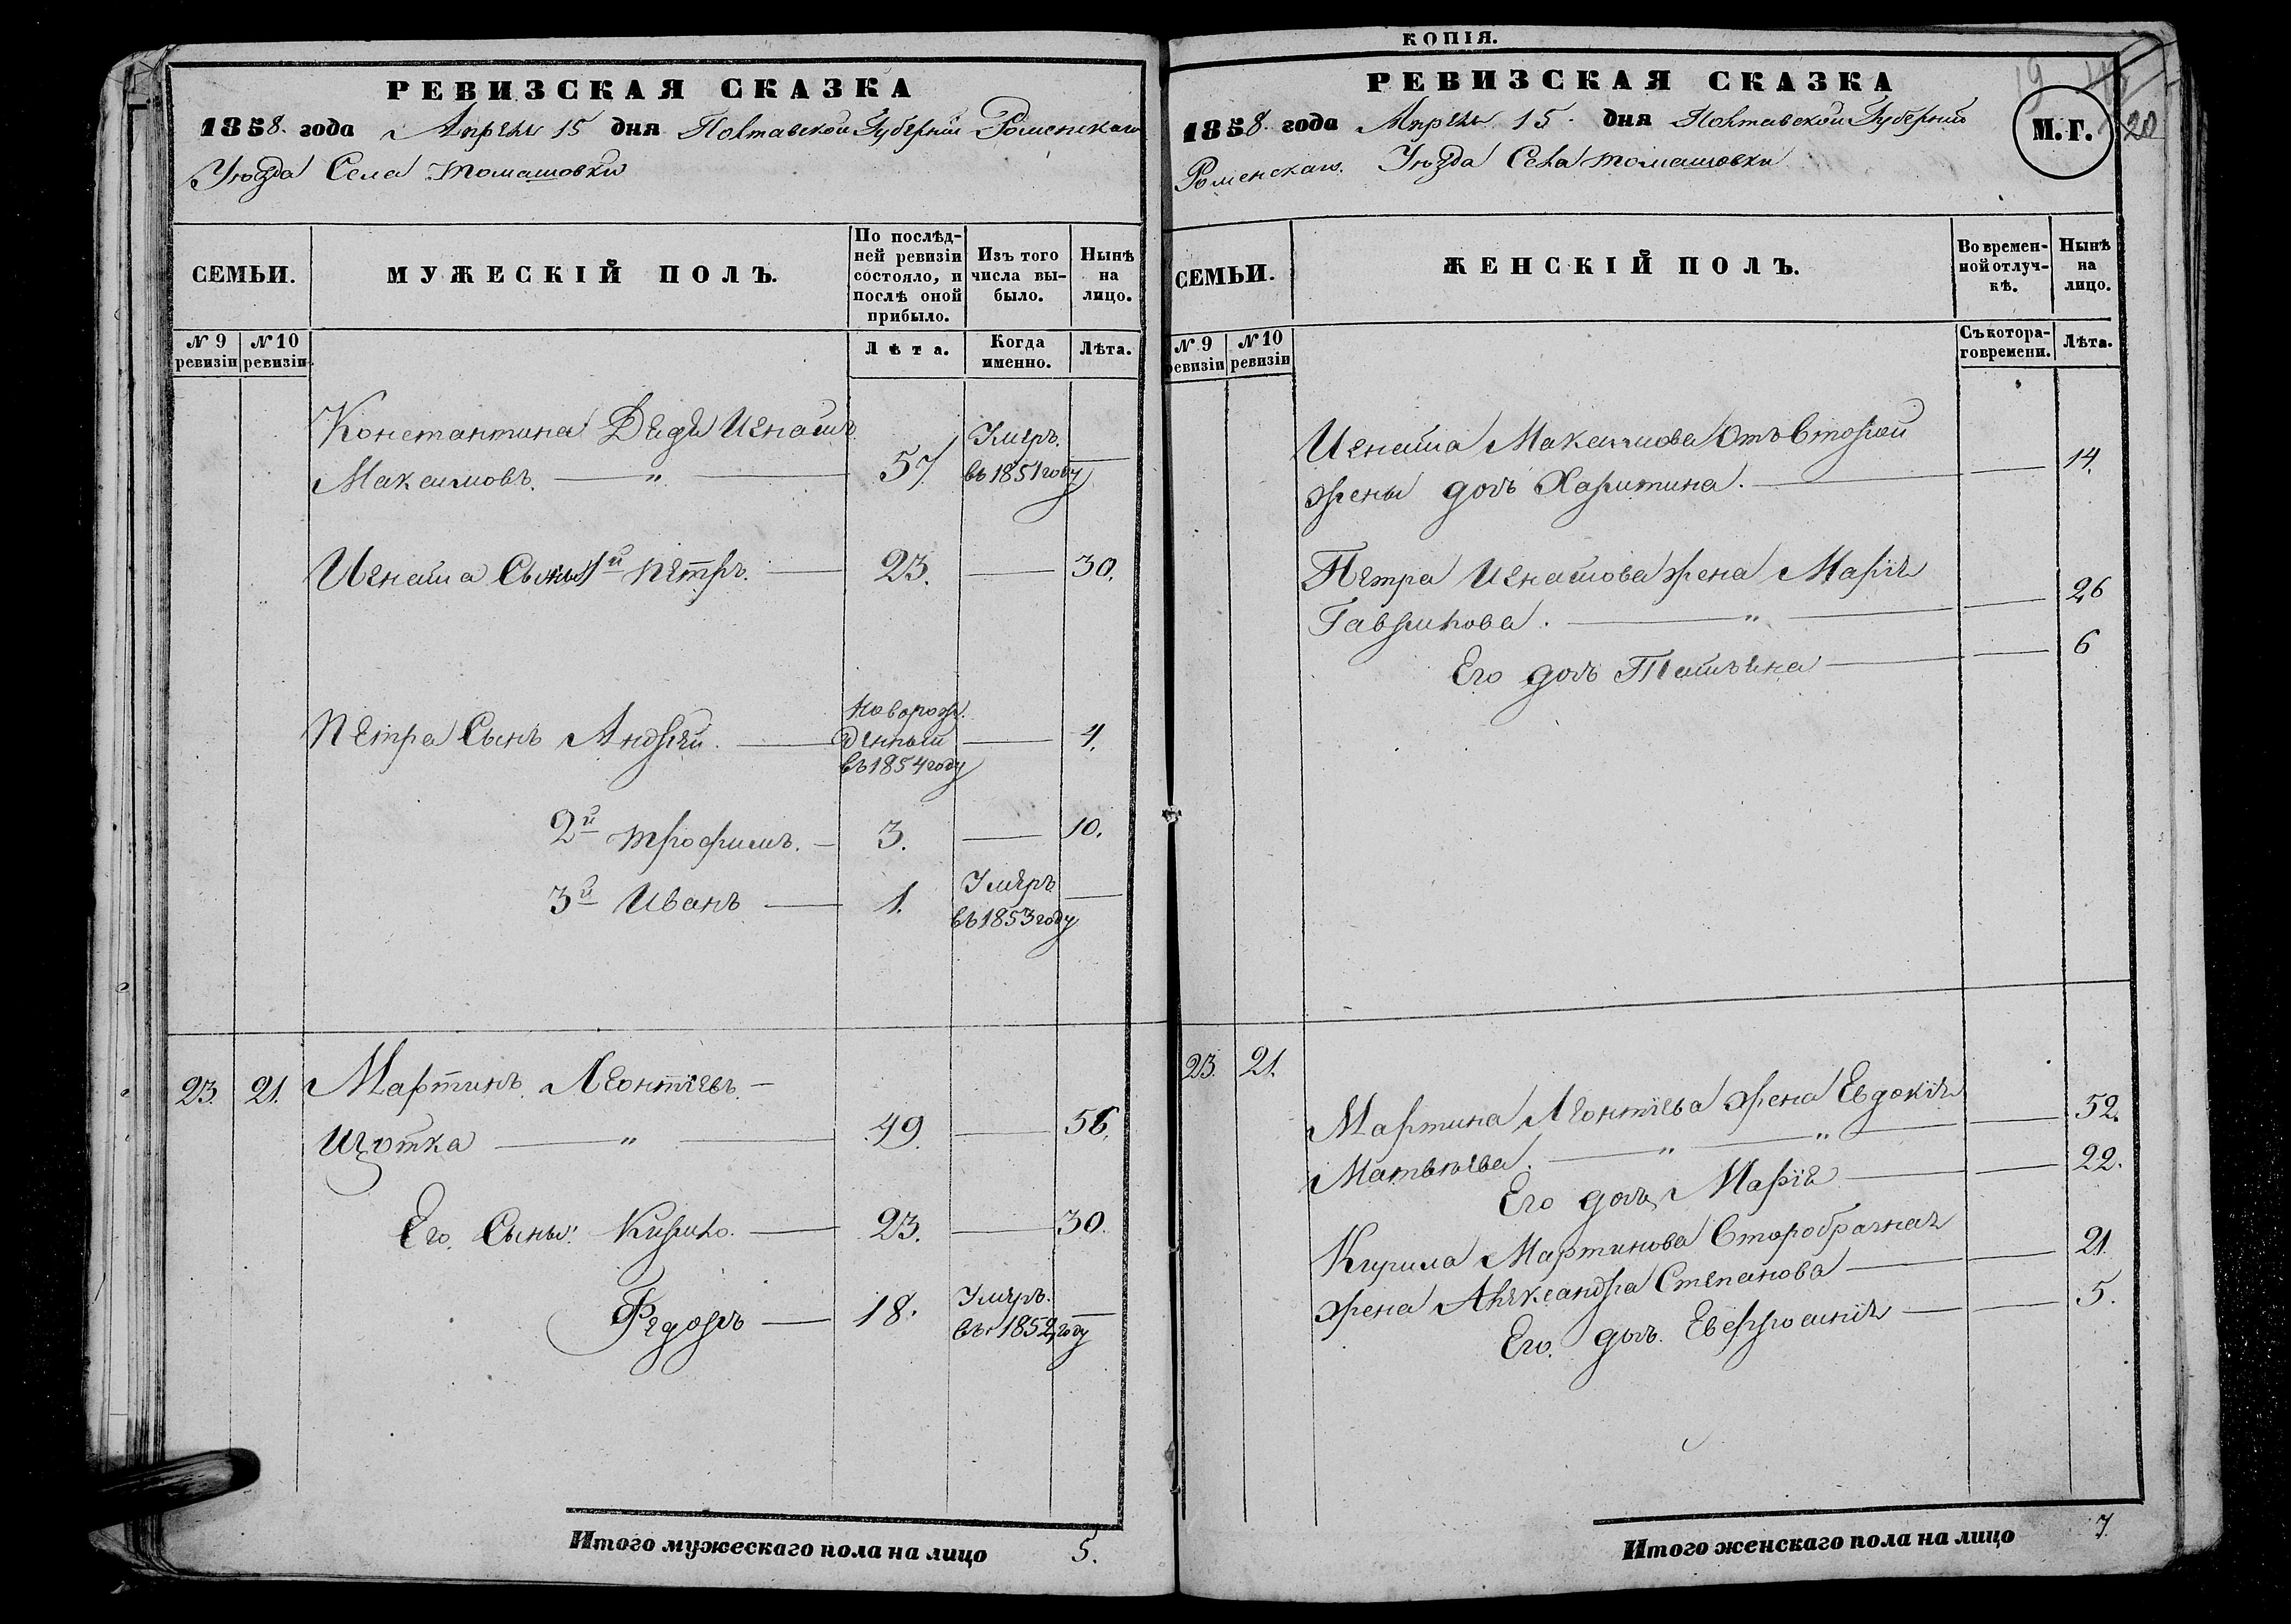 РЕВИЗСКАЯ СКАЗКА
1858. года Апреля 15 дня Полтавской Губерніи Роменскаго
Уѣзда Села Томашовки
СЕМЬИ.
МУЖЕСКІЙ ПОЛЪ.
По послѣд-
ней ревизіи
состояло, и
послѣ оной
прибыло.
Изъ того
числа вы-
было.
Нынѣ
на
лицо.
№ 9
ревизіи
№ 10
ревизіи
Лѣта.
Когда
именно.
Лѣта.
Константина Дядя Игнатъ
Максимовъ. — " — 57. Умеръ въ 1851 году —
Игната Сыны 1й Петръ. — 23. — 30.
Петра Сынъ Андрей. —Новорож-
денный — 4.
въ 1854 году
2й Трофимъ. — 3. — 10.
3й Иванъ — 1. Умеръ въ 1853 году —
23. 21. Мартинъ Леонтіевъ —
Щотка — " — 49. — 56.
Его Сыны: Кирило. — 23. — 30.
Федоръ — 18. Умеръ. въ 1852 году —
Итого мужескаго пола на лицо 5.
КОПІЯ.
РЕВИЗСКАЯ СКАЗКА
19
20
М.Г.
1858. года Апреля 15. дня Полтавской Губерніи
Роменскаго. Уѣзда Села Томашовки
СЕМЬИ.
ЖЕНСКІЙ ПОЛЪ.
Во времен-
ной отлуч-
кѣ.
Нынѣ
на
лицо.
№ 9
ревизіи
№ 10
ревизіи
Съ котора-
го времени.
Лѣта.
Игната Максимова Отъ Второй
жены дочь Харитина. — — 14.
Петра Игнатова жена Марія
Гаврилова. — " — — 26
Его дочь Татьяна — — 6
23. 21.
Мартина Леонтіева жена Евдокія
Матвѣева. — " — " — — 52.
Его дочь Марія — — 22.
Кирила Мартинова Второбрачная
жена Александра Степанова — — 21.
Его. дочь. Евфросинія — — 5.
Итого женскаго пола на лицо 7.